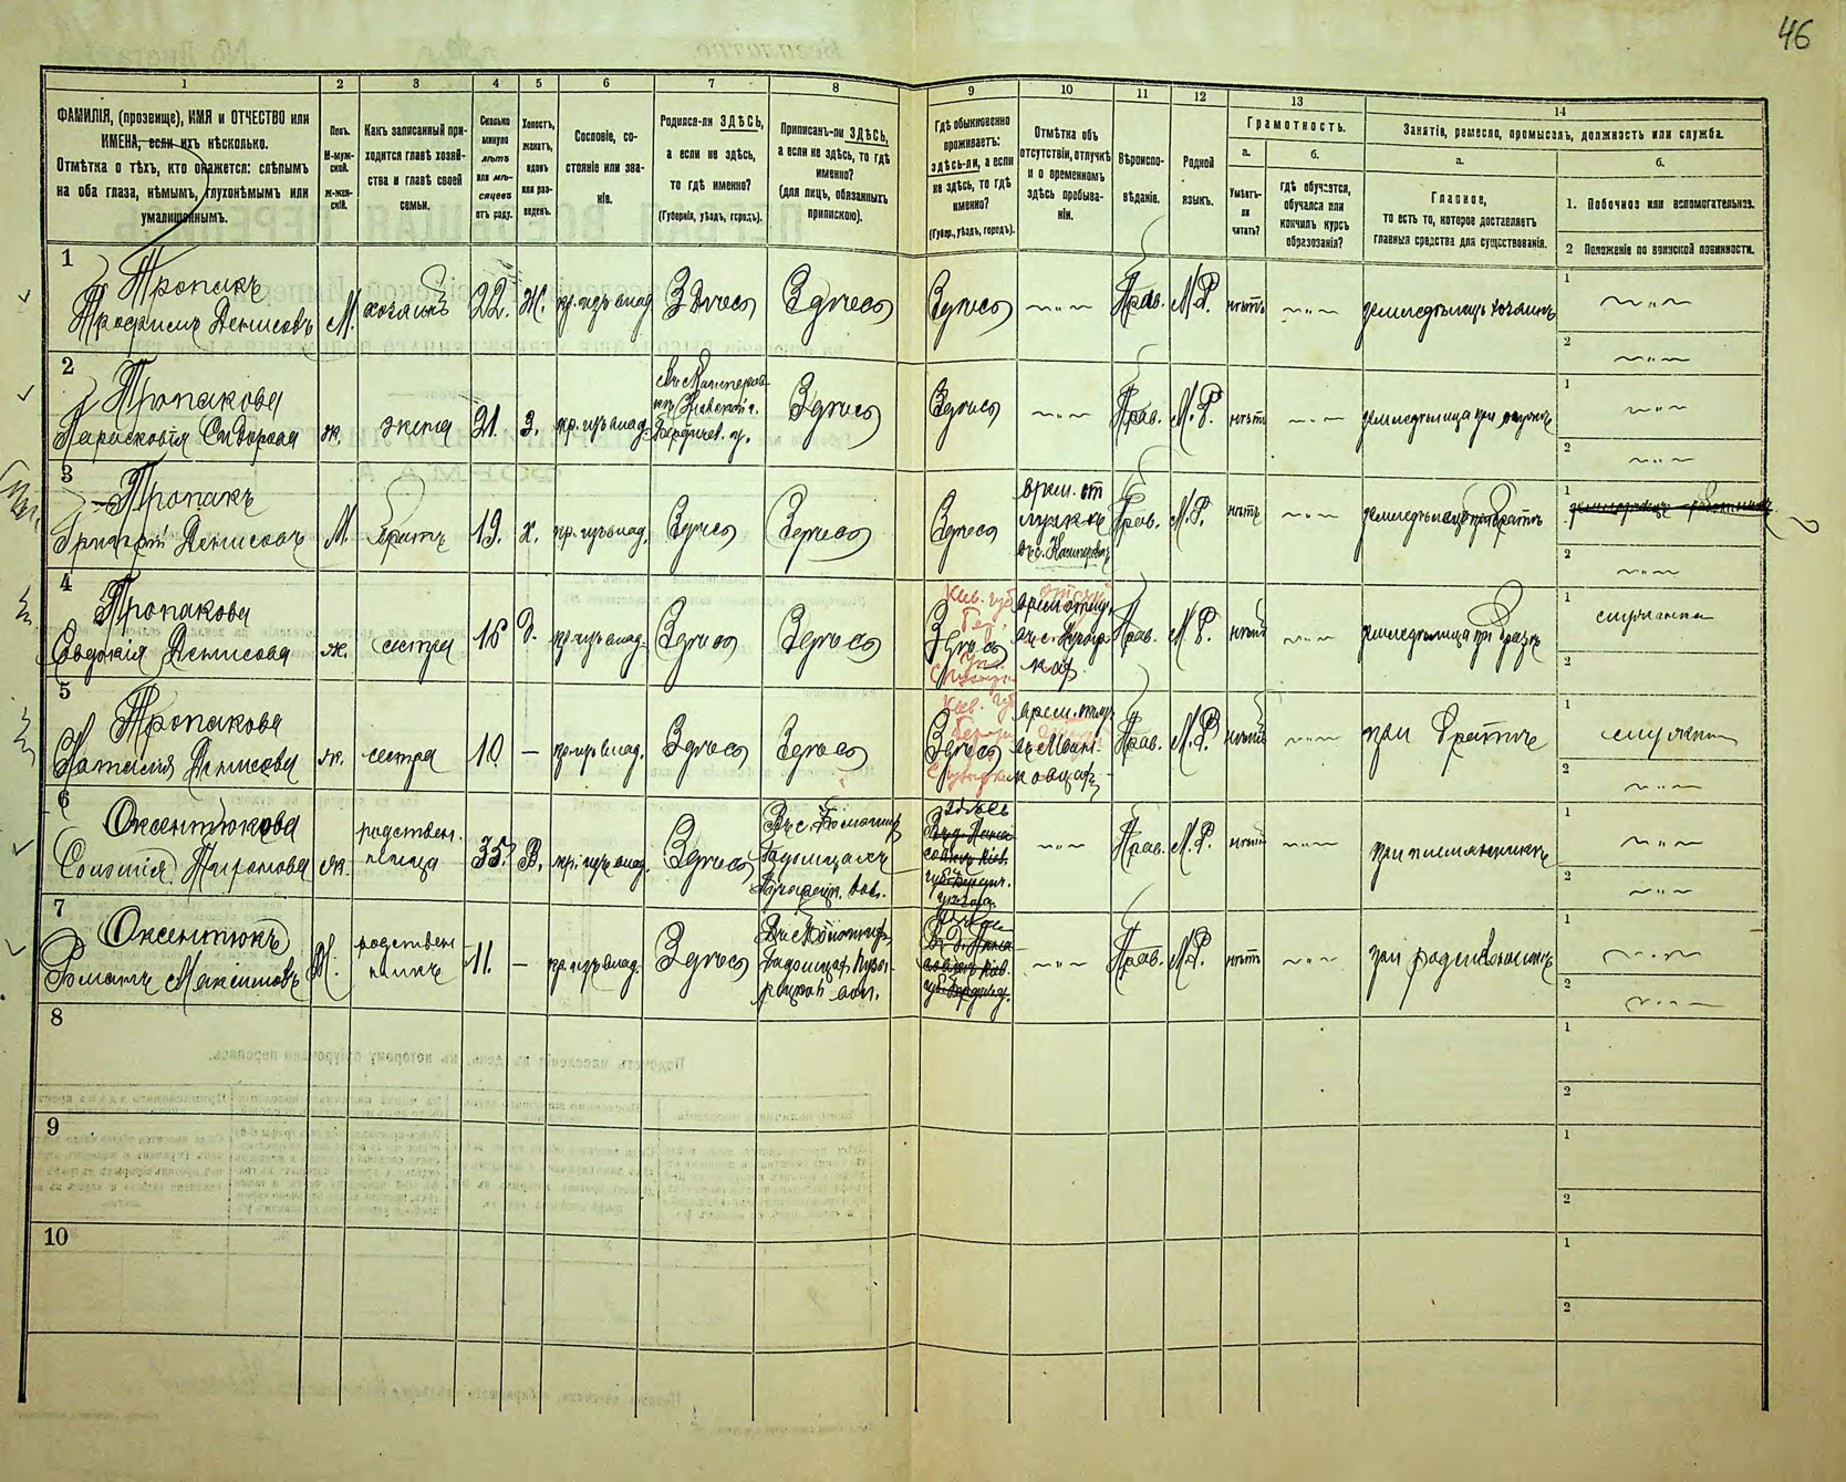 46
1 2 3 4 5 6 7 8 9 10 11 12 13 14
ФАМИЛІЯ, (прозвище), ИМЯ и ОТЧЕСТВО или
ИМЕНА, если ихъ нѣсколько.
Отмѣтка о тѣхъ, кто окажется: слѣпымъ
на оба глаза, нѣмымъ, глухонѣмымъ или
умалишеннымъ.
Полъ.
М-муж-
ской.
ж-жен-
скій.
Какъ записанный при-
ходится главѣ хозяй-
ства и главѣ своей
семьи.
Сколько
минуло
лѣтъ
или мѣ-
сяцевъ
отъ роду.
Холостъ,
женатъ,
вдовъ
или раз-
веденъ.
Сословіе, со-
стояніе или зва-
ніе.
Родился-ли ЗДѢСЬ,
а если не здѣсь,
то гдѣ именно?
(Губернія, уѣздъ, городъ).
Приписанъ-ли ЗДѢСЬ,
а если не здѣсь, то гдѣ
именно?
(для лицъ, обязанныхъ
припискою).
Гдѣ обыкновенно
проживаетъ:
здѣсь-ли, а если
не здѣсь, то гдѣ
именно?
(Губер., уѣздъ, городъ).
Отмѣтка объ
отсутствіи, отлучкѣ
и о временномъ
здѣсь пребыва-
ніи.
Вѣроиспо-
вѣданіе.
Родной
языкъ.
Грамотность.
а.
Умѣетъ-
ли
читать?
б.
гдѣ обучается,
обучался или
кончилъ курсъ
образованія?
Занятіе, ремесло, промыселъ, должность или служба.
а.
Главное,
то есть то, которое доставляетъ
главныя средства для существованія.
б.
1. Побочное или вспомогательное.
2 Положеніе по воинской повинности.
1
Тропакъ
Трофимъ Денисовъ
М.
хозяинъ
22.
Ж.
кр. изъ влад.
Здѣсь
Здѣсь
Здѣсь
— " —
Прав.
М.Р.
нѣтъ
— " —
земледѣлецъ хозяинъ
1 — " —
2 — " —
2
Тропакова
Парасковія Сидорова
ж.
жена
21.
З.
кр. изъ влад.
Бердичев. у.
Здѣсь
Здѣсь
— " —
Прав.
М.Р.
нѣтъ
— " —
земледѣлица при мужѣ
1 — " —
2 — " —
3
Тропакъ
Григорій Денисовъ
М.
братъ
19.
х.
кр. изъ влад.
Здѣсь
Здѣсь
Здѣсь
Прав.
М.Р.
нѣтъ
— " —
1
2 — " —
4
Тропакова
Евдокія Денисова
ж.
сестра
16
д.
кр. изъ влад.
Здѣсь
Здѣсь
Кіев. губ.
Здѣсь
Прав.
М.Р.
нѣтъ
— " —
земледѣлица при братѣ
1 служанка
2
5
Тропакова
Наталія Денисова
ж.
сестра
10
—
кр. изъ влад.
Здѣсь
Здѣсь
Кіев. губ.
Здѣсь
Прав.
М.Р.
нѣтъ
— " —
при братѣ
1
2 — " —
6
Оксентюкова
Соломія Парфонова
ж.
родствен.
ница
35.
В.
кр. изъ влад.
Здѣсь
здѣсь
— " —
Прав.
М.Р.
нѣтъ
— " —
при племянникѣ
1 — " —
2 — " —
7
Оксентюкъ
Романъ Максимовъ
М.
родствен
никъ
11.
—
кр. изъ влад.
Здѣсь
— " —
Прав.
М.Р.
нѣтъ
— " —
при родственникѣ
1 — " —
2 — " —
8
1
2
9
1
2
10
1
2